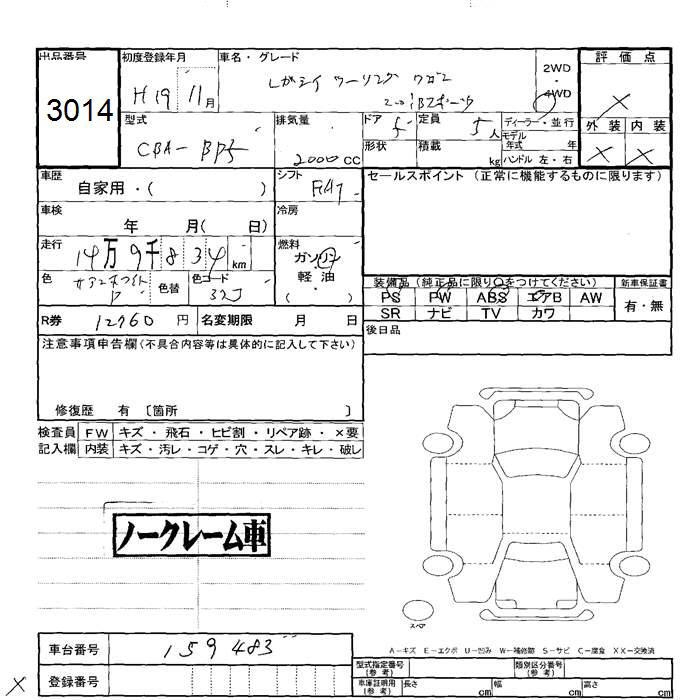 出品番号 初度登録年月 車名・グレード 評価点
3014 H19 11月 レガシイ ツーリング ワゴン 2WD
2.0i Bスポーツ 4WD
外装 内装
型式 排気量 ドア 定員 ディーラー・並行
CBA-BP5 2000cc 5 5人 モデル年式 年
形状 積載 kg ハンドル 左・右
車歴 自家用・( ) シフト FAT セールスポイント (正常に機能するものに限ります)
車検 年 月( 日) 冷房
走行 14万9千834km 燃料 ガソリン
軽油
( )
色 色替 色コード 32J
装備品 (純正品に限り○をつけてください) 新車保証書
PS PW ABS エアB AW 有・無
SR ナビ TV カワ
R券 12760円 名変期限 月 日 後日品
注意事項申告欄(不具合内容等は具体的に記入して下さい)
修復歴 有 〔箇所 〕
検査員 FW キズ・飛石・ヒビ割・リペア跡・×要
記入欄 内装 キズ・汚レ・コゲ・穴・スレ・キレ・破レ
ノークレーム車
スペア
A-キズ E-エクボ U-凹み W-補修跡 S-サビ C-腐食 XX-交換済
車台番号 159483
登録番号
型式指定番号(参考) 類別区分番号(参考)
車庫証明用(参考) 長さ cm 幅 cm 高さ cm